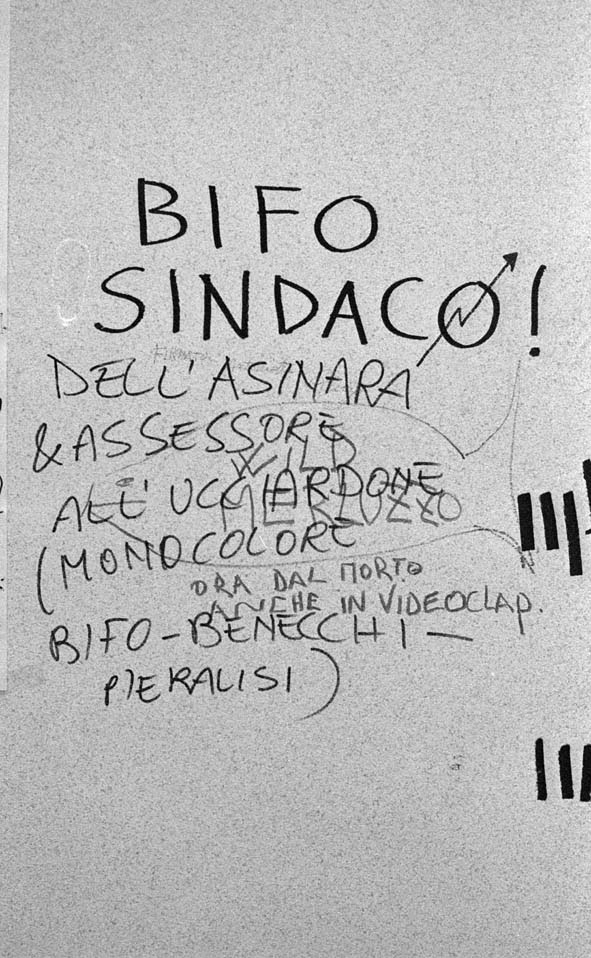 BIFO
SINDACO!
DELL'ASINARA
& ASSESSORE
WILD
ALL'UCCIARDONE
MERLUZZO
(MONOCOLORE
ORA DAL MORTO
ANCHE IN VIDEOCLAP.
BIFO-BENECCHI-
PIERALISI)